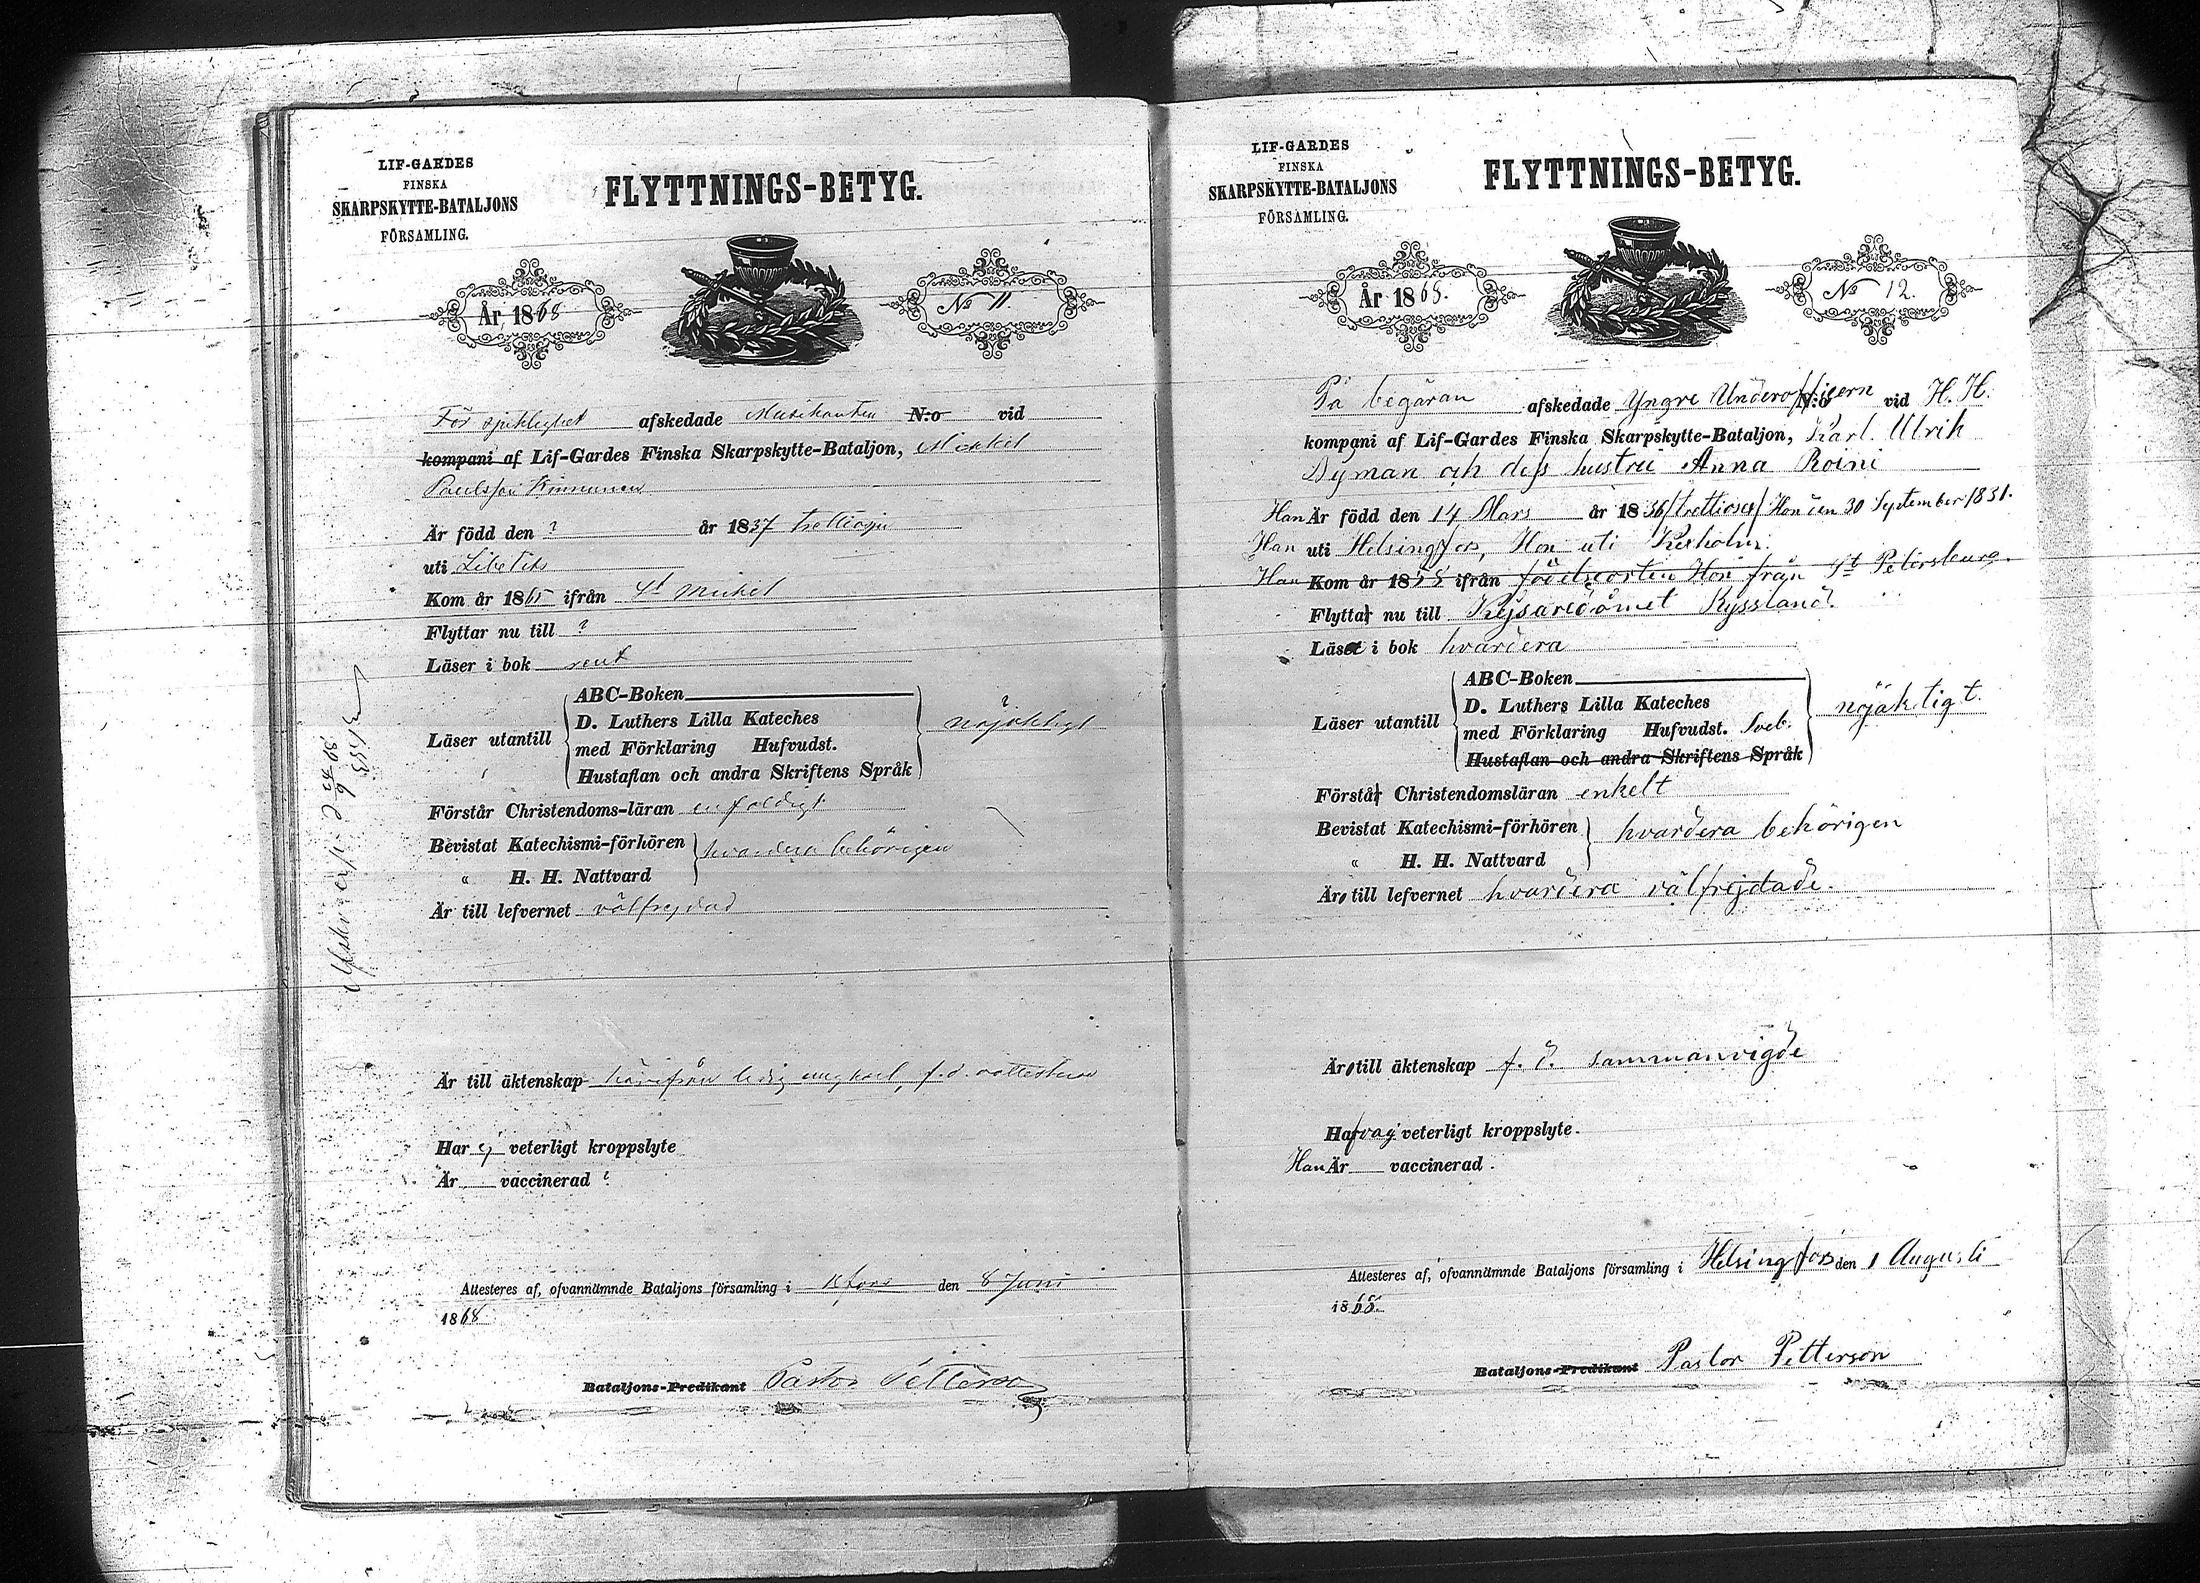 LIF-GARDES
FINSKA
SKARPSKYTTE-BATALJONS
FÖRSAMLING.
FLYTTNINGS-BETYG.
År 1868
No 11
För sjuklighet afskedade Musikanten N:o vid
kompani af Lif-Gardes Finska Skarpskytte-Bataljon, Mickel
Paulsson Kinnunen
Är född den ? år 1837 trettiosju
uti Libelits
Kom år 1865 ifrån St Michel
Flyttar nu till ?
Läser i bok rent
Läser utantill
ABC-Boken
D. Luthers Lilla Kateches
med Förklaring Hufvudst.
Hustaflan och andra Skriftens Språk
nöjaktigt
Förstår Christendoms-läran enfaldigt
Bevistat Katechismi-förhören
" H. H. Nattvard
hvardera behörigen
Är till lefvernet välfrejdad
Är till äktenskap härifrån ledig ungkarl, f. d.
Har ej veterligt kroppslyte
Är vaccinerad ?
Attesteres af, ofvannämnde Bataljons församling i Hfors den 8 Juni
1868
Bataljons-Predikant Pastor Petterson
LIF-GARDES
FINSKA
SKARPSKYTTE-BATALJONS
FÖRSAMLING.
FLYTTNINGS-BETYG.
År 1868.
No 12.
På begäran afskedade Yngre Underofficern N:o vid H. H.
kompani af Lif-Gardes Finska Skarpskytte-Bataljon, Karl Ulrik
Dyman och dess hustru Anna Roini
Han Är född den 14 Mars år 1836 /trettiosex/ Hon den 30 September 1831.
Han uti Helsingfors, Hon uti Kexholm
Han Kom år 1855 ifrån födelseorten Hon från St Petersburg.
Flytta nu till Kejsaredömet Ryssland.
Läsa i bok hvardera
Läser utantill
ABC-Boken
D. Luthers Lilla Kateches
med Förklaring Hufvudst. Sveb.
Hustaflan och andra Skriftens Språk
nöjaktigt.
Förstå Christendomsläran enkelt
Bevistat Katechismi-förhören
" H. H. Nattvard
hvardera behörigen
Äro till lefvernet hvardera välfrejdade.
Äro till äktenskap f. d. sammanvigde
Hafva ej veterligt kroppslyte.
Han Är vaccinerad.
Attesteres af, ofvannämnde Bataljons församling i Helsingfors den 1 Augusti
1868.
Bataljons-Predikant Pastor Petterson